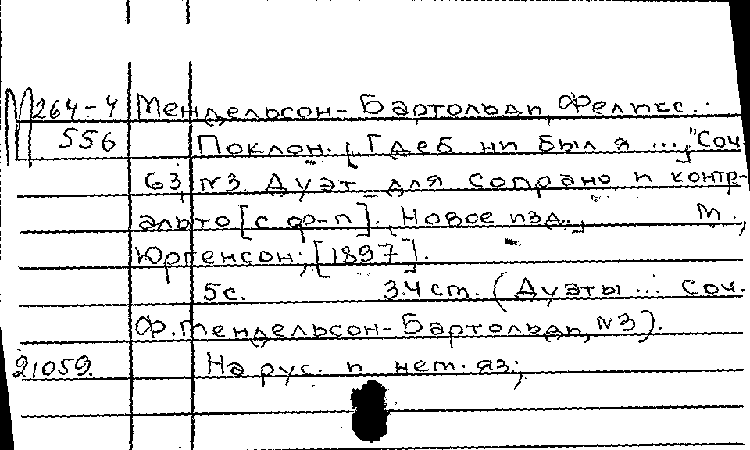 М 264-4 Мендельсон-Бартольди, Феликс.
556 Поклон. („Где б ни был я ...„) Соч.
63, №3. Дуэт для сопрано и контр-
альто [с ф-п]. Новое изд., М.,
Юргенсон, [1897].
5с. 34 ст. (Дуэты ... соч.
Ф. Мендельсон-Бартольди, №3).
21059. На рус. и нем. яз.,